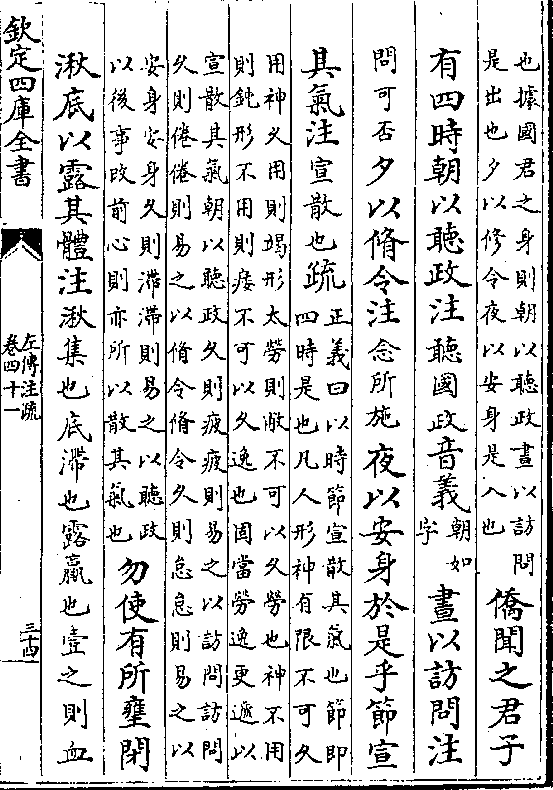 也據國君之身則朝以聽政晝以訪問
是出也夕以修令夜以安身是入也
僑聞之君子
有四時朝以聽政注聽國政音義
朝如
字
晝以訪問注
問可否夕以脩令注念所施夜以安身於是乎節宣
其氣注宣散也疏
正義曰以時節宣散其氣也節即
四時是也凡人形神有限不可久
用神久用則竭形太勞則敝不可以久勞也神不用
則鈍形不用則痿不可以久逸也固當勞逸更遞以
宣散其氣朝以聽政久則疲疲則易之以訪問訪問
久則倦倦則易之以脩令脩令久則怠怠則易之以
安身安身久則滯滯則易之以聽政
以後事改前心則亦所以散其氣也
勿使有所壅閉
湫底以露其體注湫集也底滯也露羸也壹之則血
欽定四庫全書
左傳注疏
卷四十一
三十四